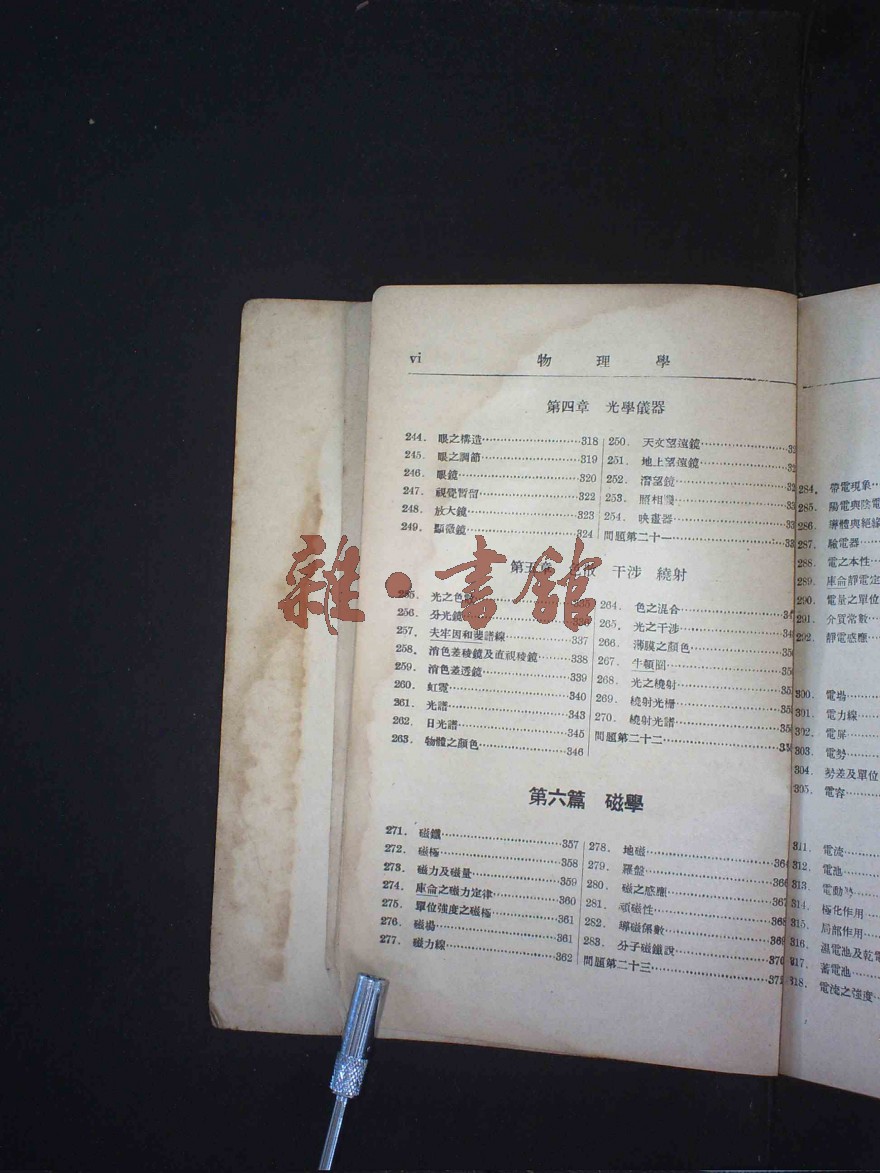 vi 物理學
第四章 光學儀器
244. 眼之構造 318
245. 眼之調節 319
246. 眼鏡 320
247. 視覺暫留 322
248. 放大鏡 323
249. 顯微鏡 324
250. 天文望遠鏡
251. 地上望遠鏡
252. 潛望鏡
253. 照相
254. 映畫器
問題第二十一
第五章 干涉 繞射
光之色
256. 分光鏡
257. 夫牢因和斐譜線 337
258. 消色差稜鏡及直視稜鏡 338
259. 消色差透鏡 339
260. 虹霓 340
261. 光譜 343
262. 日光譜 345
263. 物體之顏色 346
264. 色之混合
265. 光之干涉
266. 薄膜之顏色
267. 牛頓圈
268. 光之繞射
269. 繞射光柵
270. 繞射光譜
問題第二十二
第六篇 磁學
271. 磁鐵 357
272. 磁極 358
273. 磁力及磁量 359
274. 庫侖之磁力定律 360
275. 單位強度之磁極 361
276. 磁場 361
277. 磁力線 362
278. 地磁
279. 羅盤 366
280. 磁之感應 367
281. 頑磁性 368
282. 導磁係數 369
283. 分子磁鐵說 370
問題第二十三
284. 帶電現象
285. 陽電與陰電
286. 導體與絕緣
287. 驗電器
288. 電之本性
289. 庫侖靜電定
290. 電量之單位
291. 介質常數
292. 靜電感應
300. 電場
301. 電力線
302. 電屏
303. 電勢
304. 勢差及單位
305. 電容
311. 電流
312. 電池
313. 電動
314. 極化作用
315. 局部作用
316. 濕電池及乾電
317. 蓄電池
318. 電流之強度
雜·書館